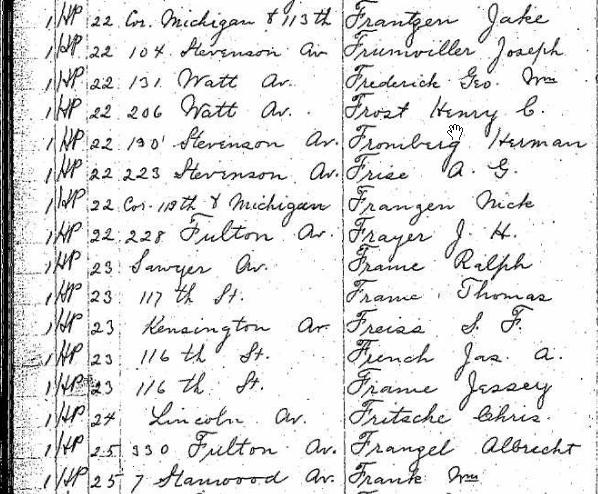 1 HP 22 Cor. Michigan & 113th Frantzen Jake
1 HP 22 104 Stevenson Av Frumviller Joseph
1 HP 22 131 Watt Av. Frederick Geo. Wm
1 HP 22 206 Watt Av. Frost Henry C.
1 HP 22 190 Stevenson Av. Fromberg Herman
1 HP 22 223 Stevenson Av. Frise A. G.
1 HP 22 Cor. 112th & Michigan Frangen Nick
1 HP 22 228 Fulton Av. Frayer J. H.
1 HP 23 Sawyer Av. Frame Ralph
1 HP 23 117 th St. Frame Thomas
1 HP 23 Kensington Av Freiss S. F.
1 HP 23 116 th St. French Jas. A.
1 HP 23 116 th St. Frame Jessey
1 HP 24 Lincoln Av. Fritsche Chris.
1 HP 25 330 Fulton Av. Frangel Albrecht
1 HP 25 7 Stanwood Av. Frank Wm